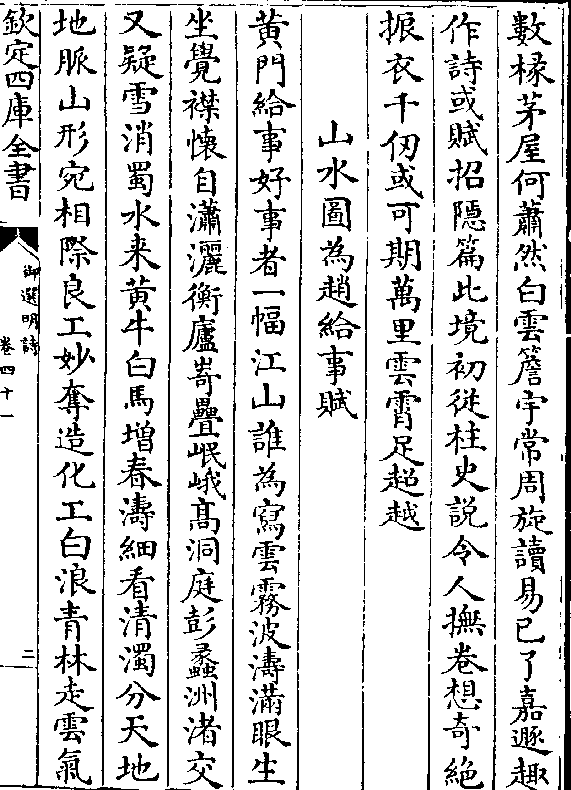 數椽茅屋何蕭然白雲簷宇常周旋讀易已了嘉遯趣
作詩或賦招隱篇此境初從柱史說令人撫卷想奇絶
振衣千仞或可期萬里雲霄足超越
山水圖為趙給事賦
黄門給事好事者一幅江山誰為寫雲霧波濤滿眼生
坐覺襟懷自瀟灑衡廬嵜疊岷峨髙洞庭彭蠡洲渚交
又疑雪消蜀水来黄牛白馬增春濤細看清濁分天地
地脈山形宛相際良工妙奪造化工白浪青林走雲氣
欽定四庫全書
御選明詩
卷四十一
二